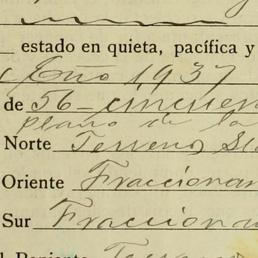 estado en quieta, pacífica y
Año 1937
de 56- cincuen
plano de la
Norte Terreno
Oriente Fraccionam
Sur Fracciona
Poniente